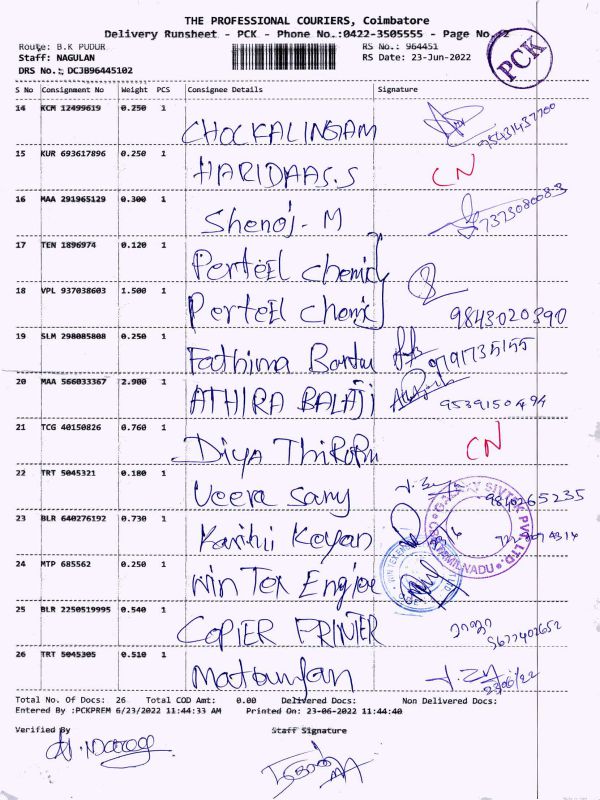 THE PROFESSIONAL COURIERS, Coimbatore
Delivery Runsheet - PCK - Phone No.:0422-3505555 - Page No. 2
PCK
Route: B.K PUDUR RS No.: 964451
Staff: NAGULAN RS Date: 23-Jun-2022
DRS No.: DCJB96445102
S No Consignment No Weight PCS Consignee Details Signature
14 KCM 12499619 0.250 1
CHOCKALINGAM
15 KUR 693617896 0.250 1
HARIDAAS.S CN
16 MAA 291965129 0.300 1
Shenoj - M
17 TEN 1896974 0.120 1
Perteel
18 VPL 937038603 1.500 1
Perteel 9843020390
19 SLM 298085808 0.250 1
Fathima 9791735155
20 MAA 566033367 2.900 1
ATHIRA BALAJI 9539150494
21 TCG 40150826 0.760 1
Diya CN
22 TRT 5045321 0.180 1
Veera Samy 9840265235
23 BLR 640276192 0.730 1
24 MTP 685562 0.250 1
Win Tex
TAMILNADU
25 BLR 2250519995 0.540 1
COPIER PRINTER
26 TRT 5045305 0.510 1
23/06/22
Total No. Of Docs: 26 Total COD Amt: 0.00 Delivered Docs: Non Delivered Docs:
Entered By :PCKPREM 6/23/2022 11:44:33 AM Printed On: 23-06-2022 11:44:40
Verified By Staff Signature